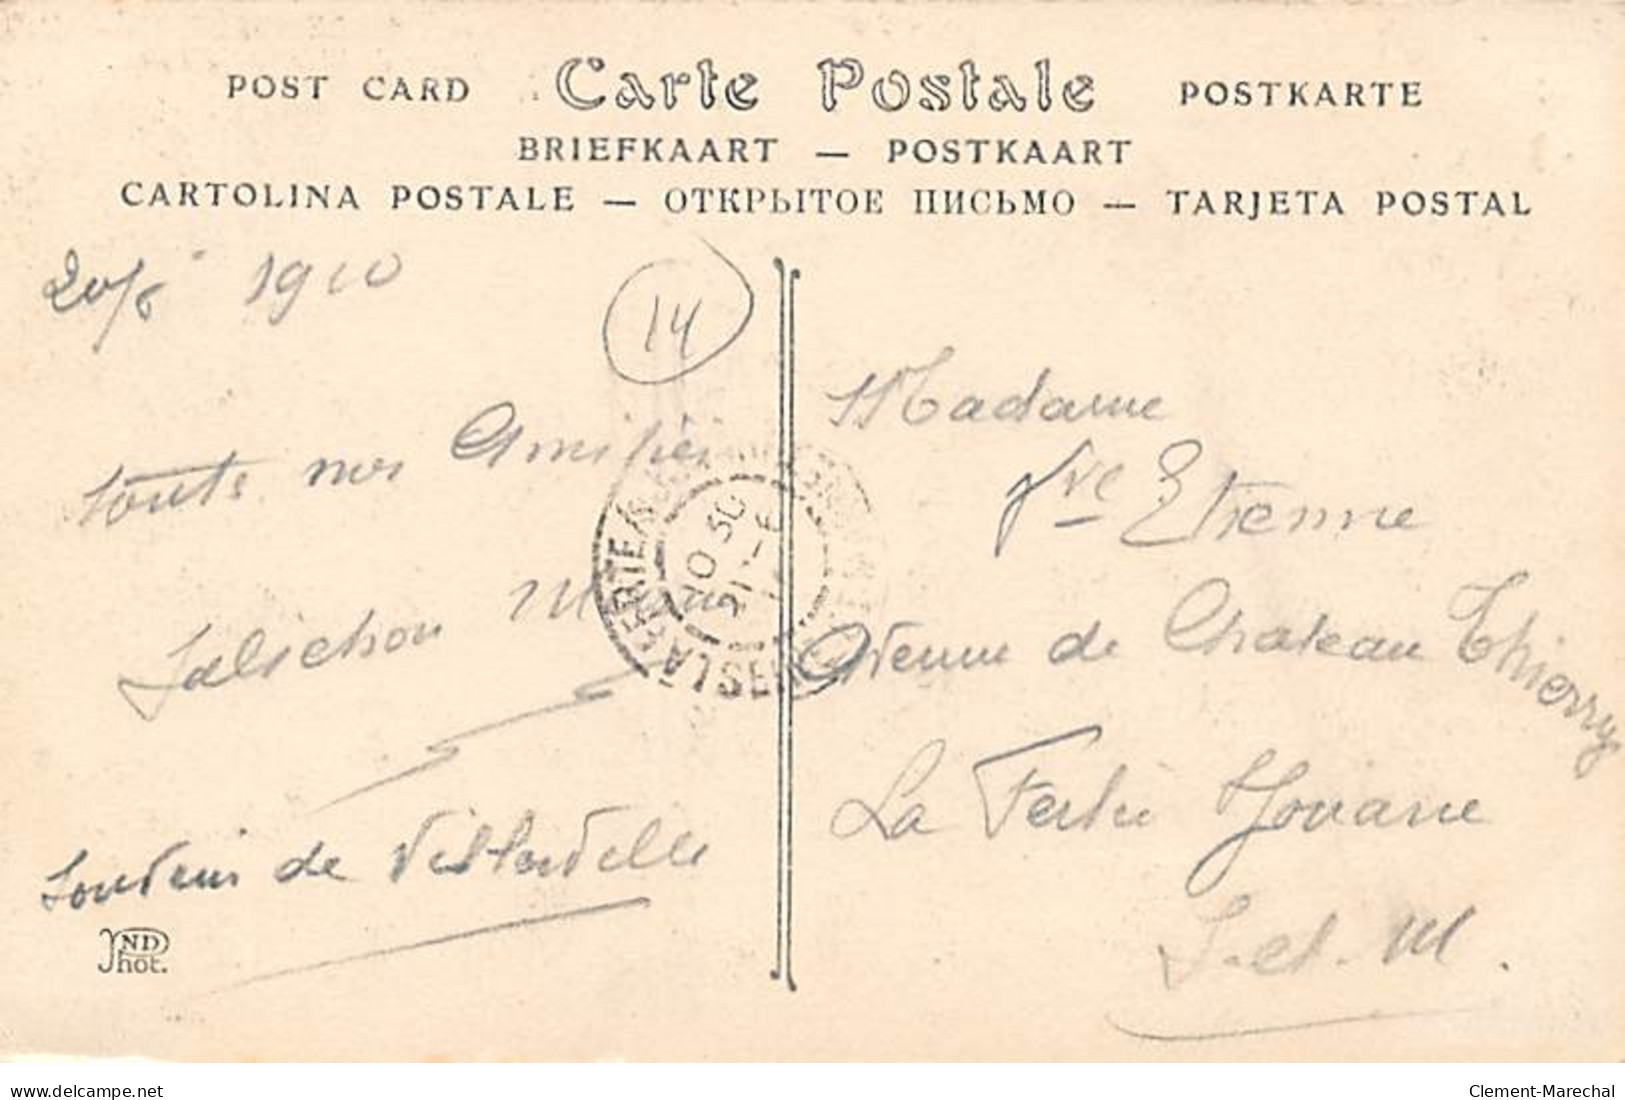 POST CARD Carte Postale POSTKARTE
BRIEFKAART — POSTKAART
CARTOLINA POSTALE — ОТКРЫТОЕ ПИСЬМО — TARJETA POSTAL
1910
14
toute nos Amitiés
Souvenir de
ND Phot.
Madame
Vve Etienne
Avenue de Chateau Thierry
La Ferté Jouarre
S. et. M.
LA FERTE
delcampe.net
Clement-Marechal